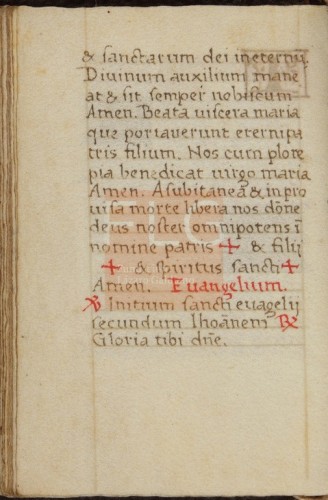 & sanctarum dei ineternū
Divinum auxilium mane
at & sit semper vobiscum
Amen. Beata viscera maria
que portaverunt eterni pa
tris filium. Nos cum prole
pia benedicat virgo maria
Amen. A subitanea & inpro
visa morte libera nos dōne
deus noster omnipotens ī
nomine patris ✠ & filij
✠ & spiritus sancti ✠
Amen. Evangelium.
℣ Initium sancti evāgelij
secundum Ihoānem ℟
Gloria tibi dn̄e.